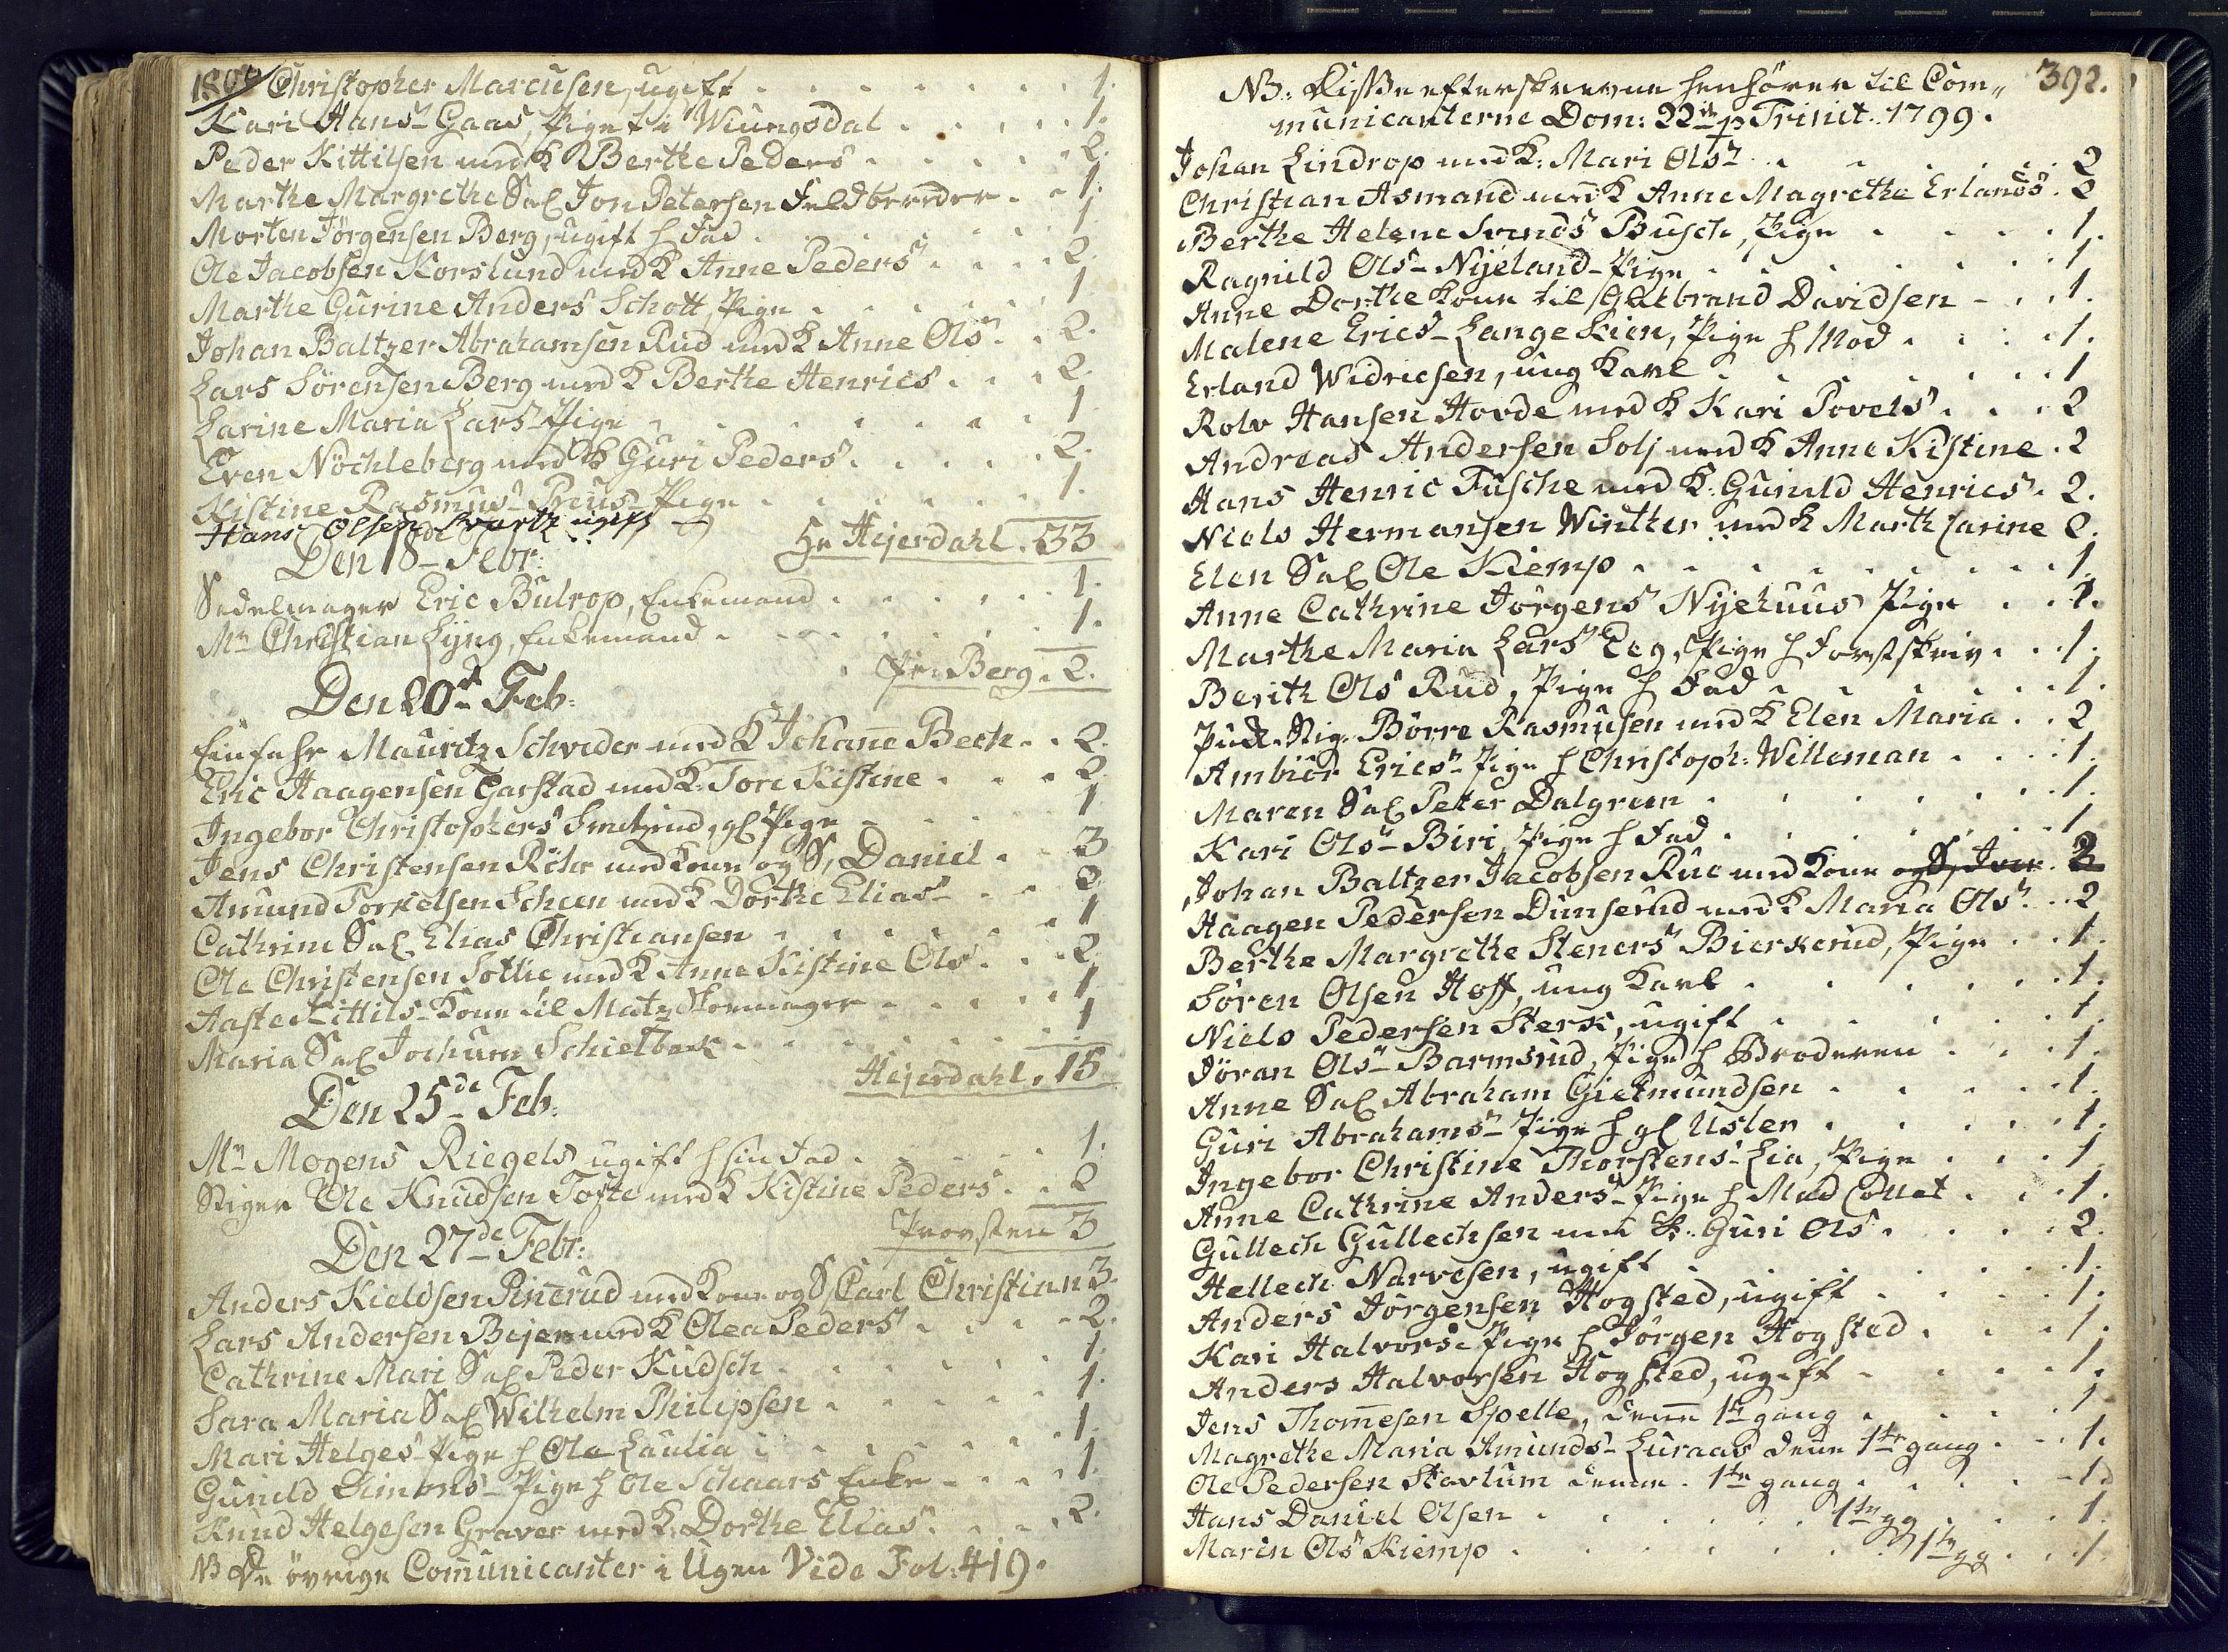 Christopher Marcusen, ugift . . . . . . . 1.
Kari Hans- Gaas, Pige . . . . 1.
Peder Kittilsen med K Berthe Peders . . . . . 2.
Marthe Margrethe Sal Jon Petersen Feldbereder . . 1.
Morten Jörgensen Berg, ugift h Fad . . . . . 1
Ole Jacobsen Korslund med K Anne Peders . . . . 2.
Marthe Gurine Anders Schott, Pige . . . . . 1
Johan Baltzer Abrahamsen Rud med K Anne Ols . . 2.
Lars Sörensen Berg med K Berthe Henrics . . . 2.
Larine Maria Lars- Pige . . . . . . 1
Even Nöchleberg med K Guri Peders . . . . . 2.
Kistine Rasmus- Preus Pige . . . . . . 1.
Hans Olsen Svartz ugift
Hr Hejerdahl . 33
Den 18- Febr:
Sadelmager Eric Bulrop, Enkemand . . . . . . 1.
Mr Christian Lyng, Enkemand . . . . . . 1.
Hr: Berg . 2.
Den 20de Feb:
Mauritz Schrøder med K Johanne Bech . . 2.
Eric Haagensen Garstad med K: Tore Kistine . . . 2
Ingebor Christophers Smetzrud, gl Pige . . . . 1
Jens Christensen Röhr med Kone og S, Daniel . . 3
Amund Torkelsen Scheen med K Dorthe Elias . . 2
Cathrine Sal Elias Christiansen . . . . . 1
Ole Christensen Sotlie med K Anne Kistine Ols . . . 2
Aaste Kittils- Kone til Matz Skomager . . . . 1
Maria Sal Jochum Schietbech . . . . . 1
Hejerdahl . 15
Den 25de Feb:
Mr Mogens Riegels ugift h sin Fad . . . . 1.
Stiger Ole Knudsen Tofte med K Kistine Peders . . 2
Provsten 3
Den 27de Febr:
Anders Kieldsen Pinerud med Kone og S, Carl Christian 3.
Lars Andersen Bejer med K Olea Peders . . . . 2.
Cathrine Mari Sal Peder Kudsch . . . . . . 1.
Sara Maria Sal Wilhelm Philipsen . . . . . 1.
Mari Helges- Pige h Ole Laulia . . . . . . 1.
Gunild Simons- Pige h Ole Schaars Enke . . . . 1
Knud Helgesen Graver med K: Dorthe Elias . . . . 2.
NB De övrige Communicanter i Ugen Vide Fol: 419.
392.
NB: Disse efterskrevne henhörer til Com„
municanterne Dom: 22de p Trinit. 1799.
Johan Lindrop med K: Mari Ols . . . . . . 2
Christian Asmand med K Anne Magrethe Erlands . 2
Berthe Helene Svends Busch, Pige . . . . 1.
Ragnild Ols- Nyeland- Pige . . . . . . 1
Anne Dorthe Kone til Gulbrand Davidsen . . . 1.
Malene Erics- Langeskien, Pige h Mod . . . . 1.
Erland Widricsen, ung Karl . . . . . . 1
Rolv Hansen Hovde med K Kari Povels . . . 2
Andreas Andersen Solj med K Anne Kistine . 2
Hans Henric Fusche med K: Gunild Henrics . 2.
Niels Hermansen Winther med K Marth Carine 2.
Elen Sal Ole Kiemp . . . . . . . 1.
Anne Cathrine Jörgens Nyehuus Pige . . 1.
Marthe Maria Lars Eeg, Pige h Forstskriv . . 1.
Berith Ols Rud, Pige h Fad . . . . . . 1.
Puk Stig. Börre Rasmusen med K Elen Maria . . 2
Ambiör Erics- Pige h Christoph: Willeman . . . 1.
Maren Sal Peter Dalgreen . . . . . . 1.
Kari Ols- Biri, Pige h Fad . . . . . . 1
Johan Baltzer Jacobsen Rue med Kone og S, Iver . 2
Haagen Pedersen Dunserud med K Maria Ols . . 2
Berthe Margrethe Steners Bierkerud, Pige . . 1.
Sören Olsen Hoff, ung Karl . . . . . . 1.
Niels Pedersen Sterk, ugift . . . . . 1.
Jöran Ols- Barmsrud, Pige h Broderen . . . 1.
Anne Sal Abraham Gietmundsen . . . . . 1.
Guri Abrahams- Pige h gl Uslen . . . . . 1.
Ingebor Christine Thorstens- Lia, Pige . . . 1
Anne Cathrine Anders- Pige h Mad Collet . . . 1.
Gullech Gullechsen med K: Guri Ols . . . . 2.
Hellech Narvesen, ugift . . . . . . 1.
Anders Jörgensen Hogsted, ugift . . . . 1.
Kari Halvors- Pige h Jörgen Hogsted . . . 1.
Anders Halvorsen Hogsted, ugift . . . . 1.
Jens Thomesen Spelle, denne 1te gang . . . . 1
Magrethe Maria Amunds- Luraas denne 1te gang . . . 1.
Ole Pedersen Stavlum denne 1te gang . . . . 1.
Hans Daniel Olsen . . . . . . 1te gg . . . 1.
Marin Ols Kiemp . . . . . . 1te gg . . 1